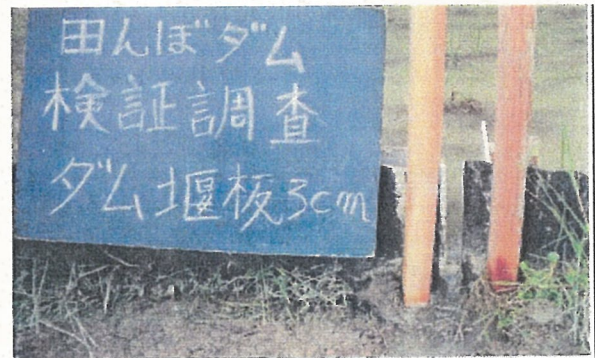 田んぼダム
検証調査
ダム堰板3cm